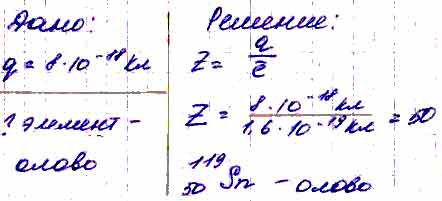 Дано:
q = 8·10⁻¹⁸ Кл
? элемент –
олово
Решение:
Z = q/e
Z = 8·10⁻¹⁸ Кл / 1,6·10⁻¹⁹ Кл = 50
¹¹⁹₅₀Sn – олово